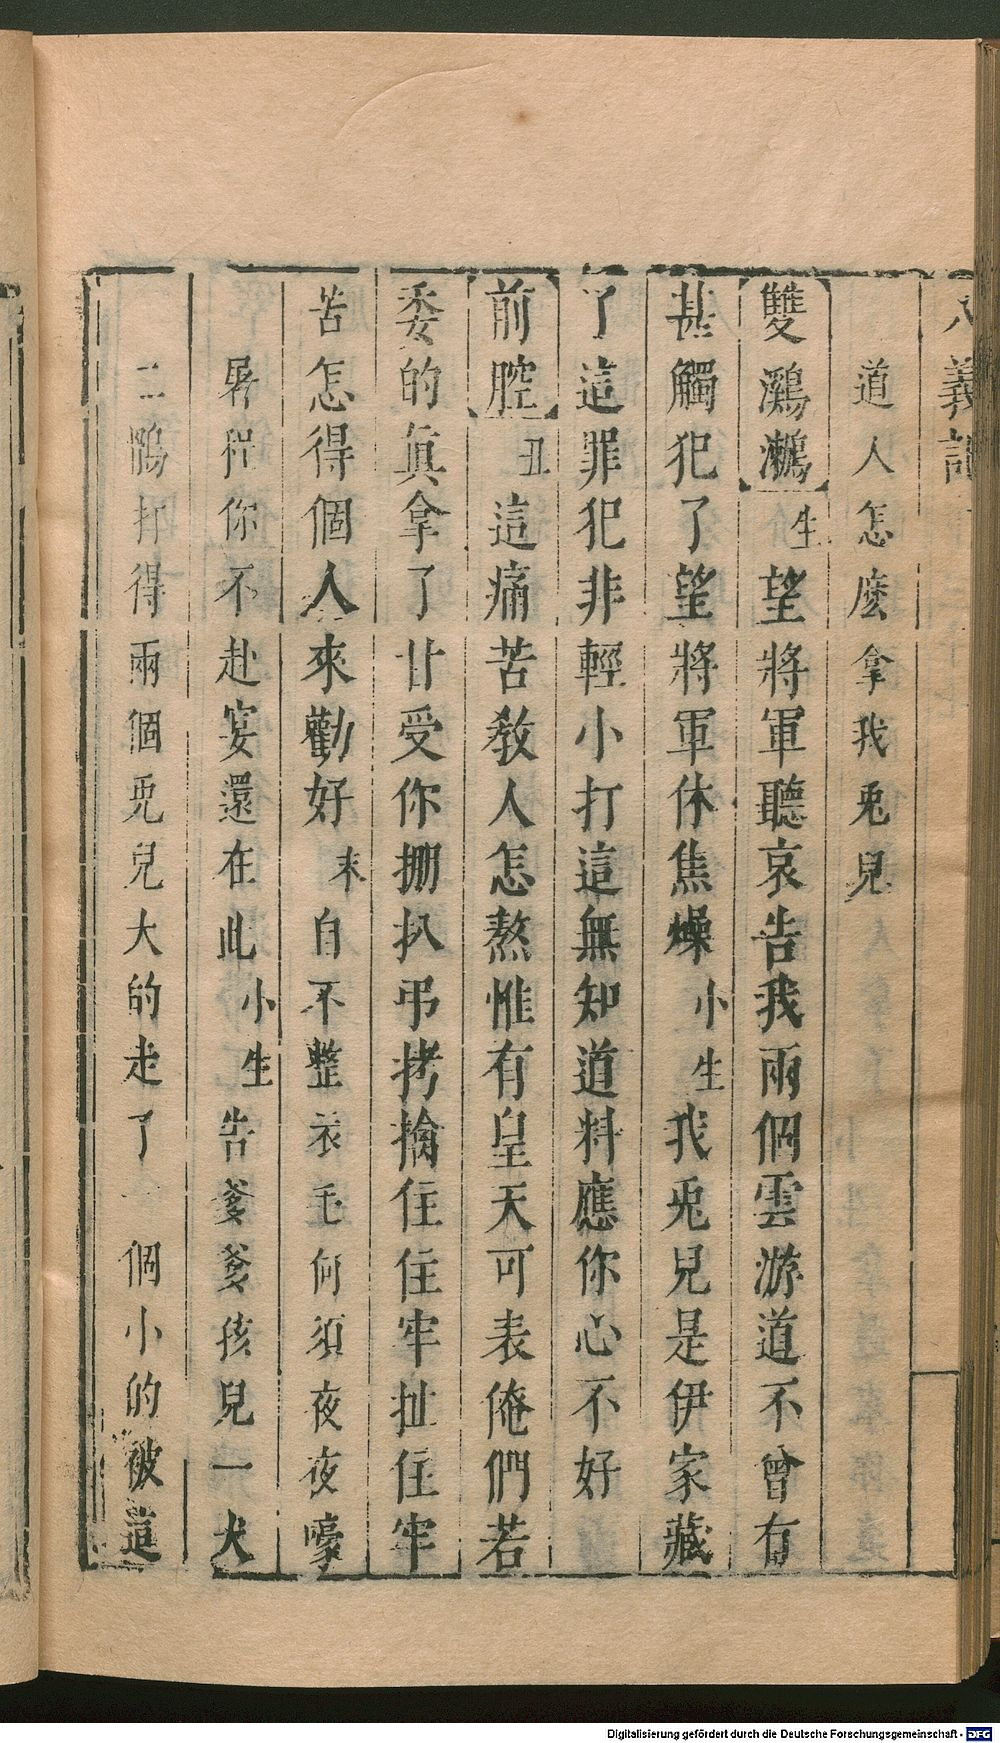 八義記
道人怎麽拿我兎兒
雙鸂鶒 生 望將軍聽哀告我兩個雲游道不曾有
甚觸犯了望將軍休焦燥 小生 我兎兒是伊家藏
了這罪犯非輕小打這無知道料應你心不好
前腔 丑 這痛苦教人怎熬惟有皇天可表俺們若
委的眞拿了甘受你掤扒弔拷擒住住牢扯住牢
苦怎得個人來勸好 末 自不整衣毛何須夜夜嚎
屠程你不赴宴還在此 小生 告爹爹孩兒一犬
二鷂打得兩個兎兒大的走了一個小的被這
Digitalisierung gefördert durch die Deutsche Forschungsgemeinschaft - DFG